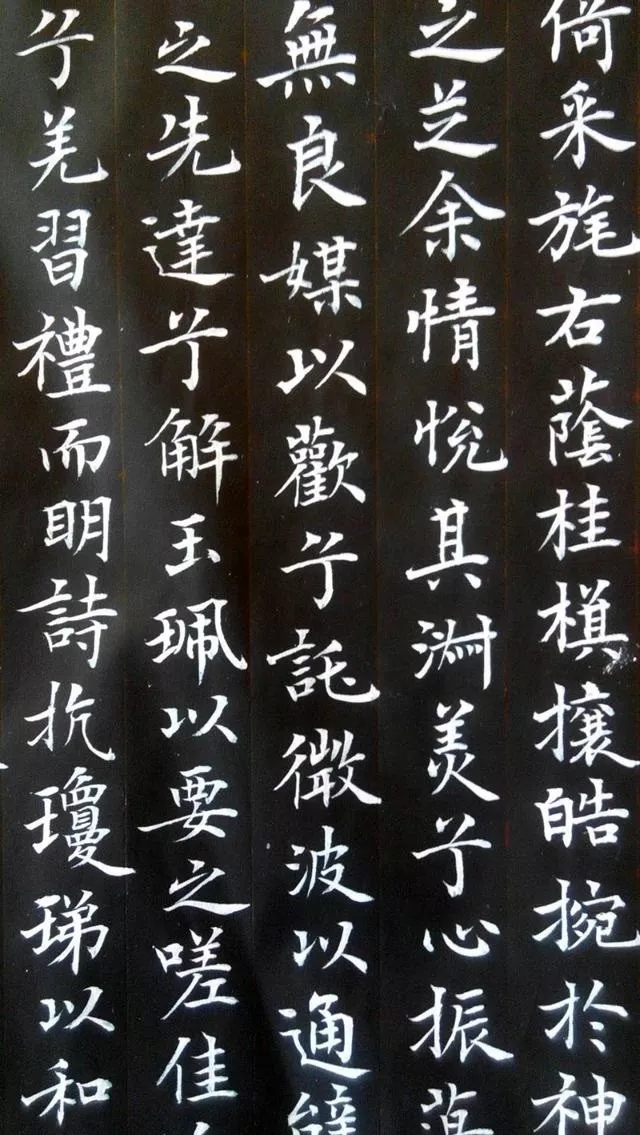 倚采旄右蔭桂旗攘皓捥於神
之芝余情悅其淑美兮心振蕩
無良媒以歡兮託微波以通辭
之先達兮解玉珮以要之嗟佳
兮羌習禮而明詩抗瓊珶以和